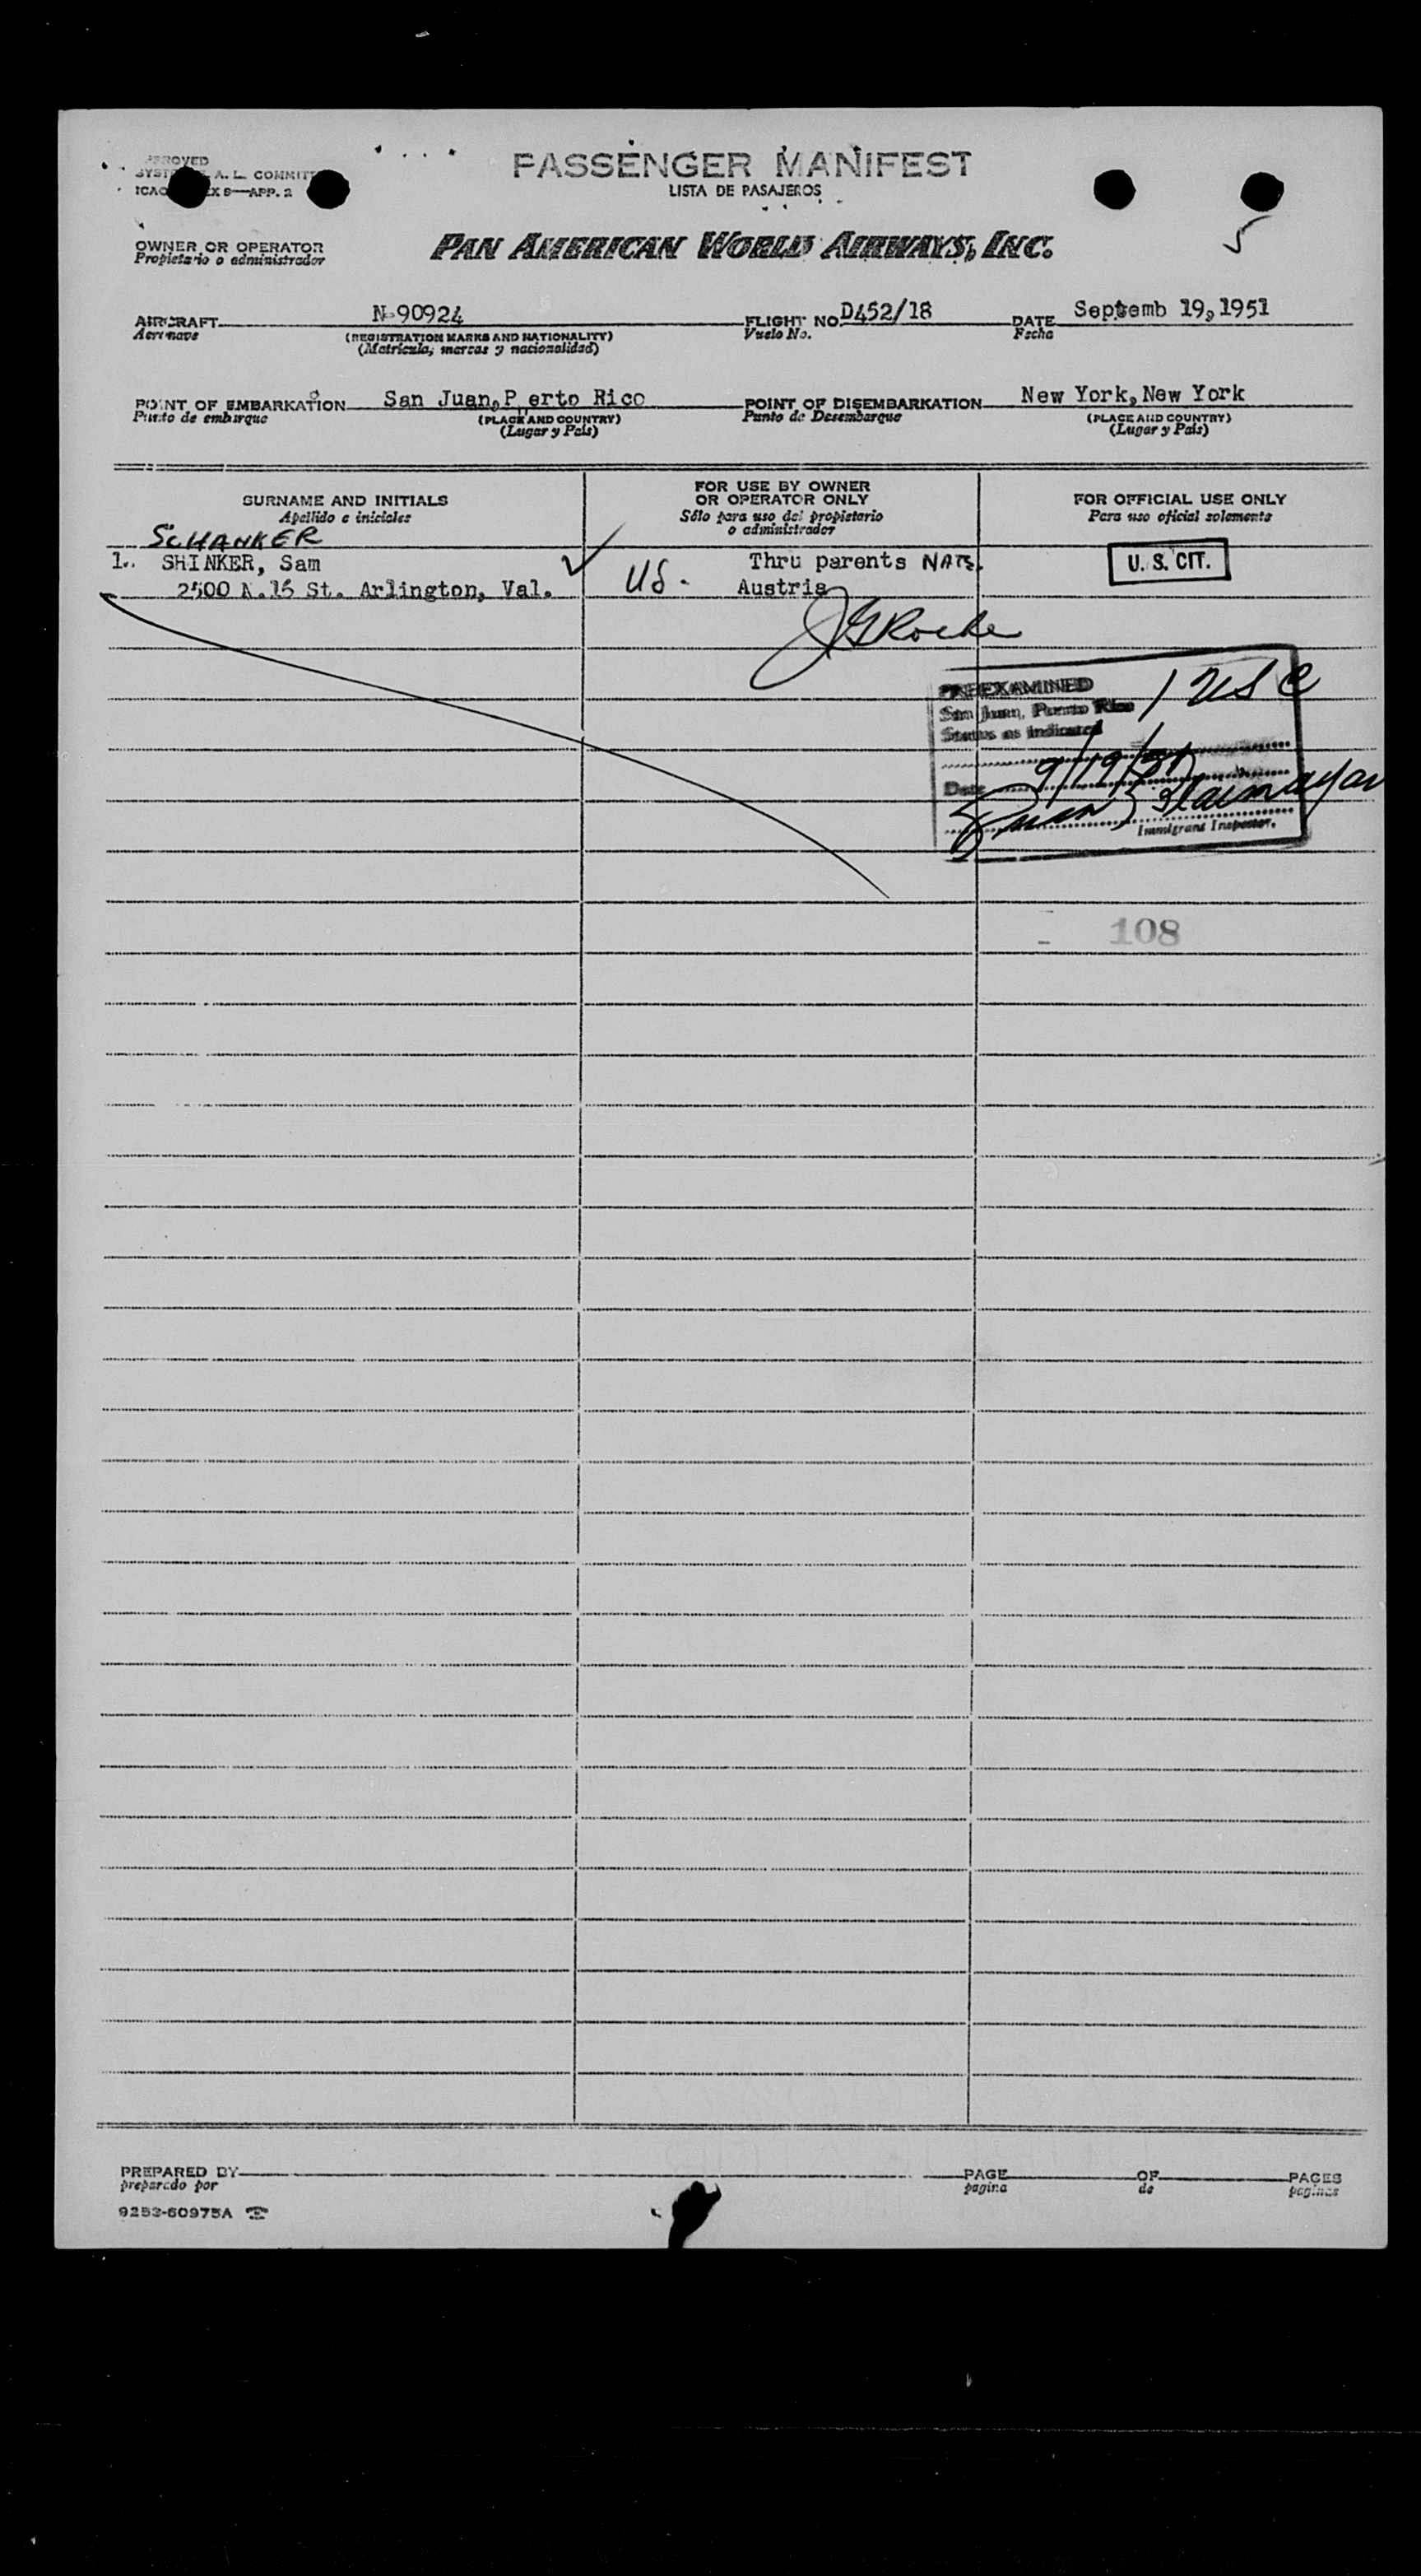 PASSENGER MANIFEST
LISTA DE PASAJEROS
A. L. COMMIT
ICAO X 9—APP. 2
5
OWNER OR OPERATOR
Propietario o administrador
PAN AMERICAN WORLD AIRWAYS, INC.
AIRCRAFT N-90924 FLIGHT NO. D452/18 DATE Septemb 19, 1951
Aeronave (REGISTRATION MARKS AND NATIONALITY) Vuelo No. Fecha
(Matrícula, marcas y nacionalidad)
POINT OF EMBARKATION San Juan, P erto Rico POINT OF DISEMBARKATION New York, New York
Punto de embarque (PLACE AND COUNTRY) Punto de Desembarque (PLACE AND COUNTRY)
(Lugar y País) (Lugar y País)
SURNAME AND INITIALS
Apellido e iniciales
FOR USE BY OWNER
OR OPERATOR ONLY
Sólo para uso del propietario
o administrador
FOR OFFICIAL USE ONLY
Para uso oficial solamente
SCHANKER
1. SHINKER, Sam ✓ US. Thru parents NATZ. U. S. CIT.
2500 N. 16 St. Arlington, Val. Austria
JGRoche
PREEXAMINED
San Juan, Puerto Rico
Status as indicated
1 USC
Date 9/19/51
Immigrant Inspector.
108
PREPARED BY PAGE OF PAGES
preparado por pagina de paginas
9253-60975A